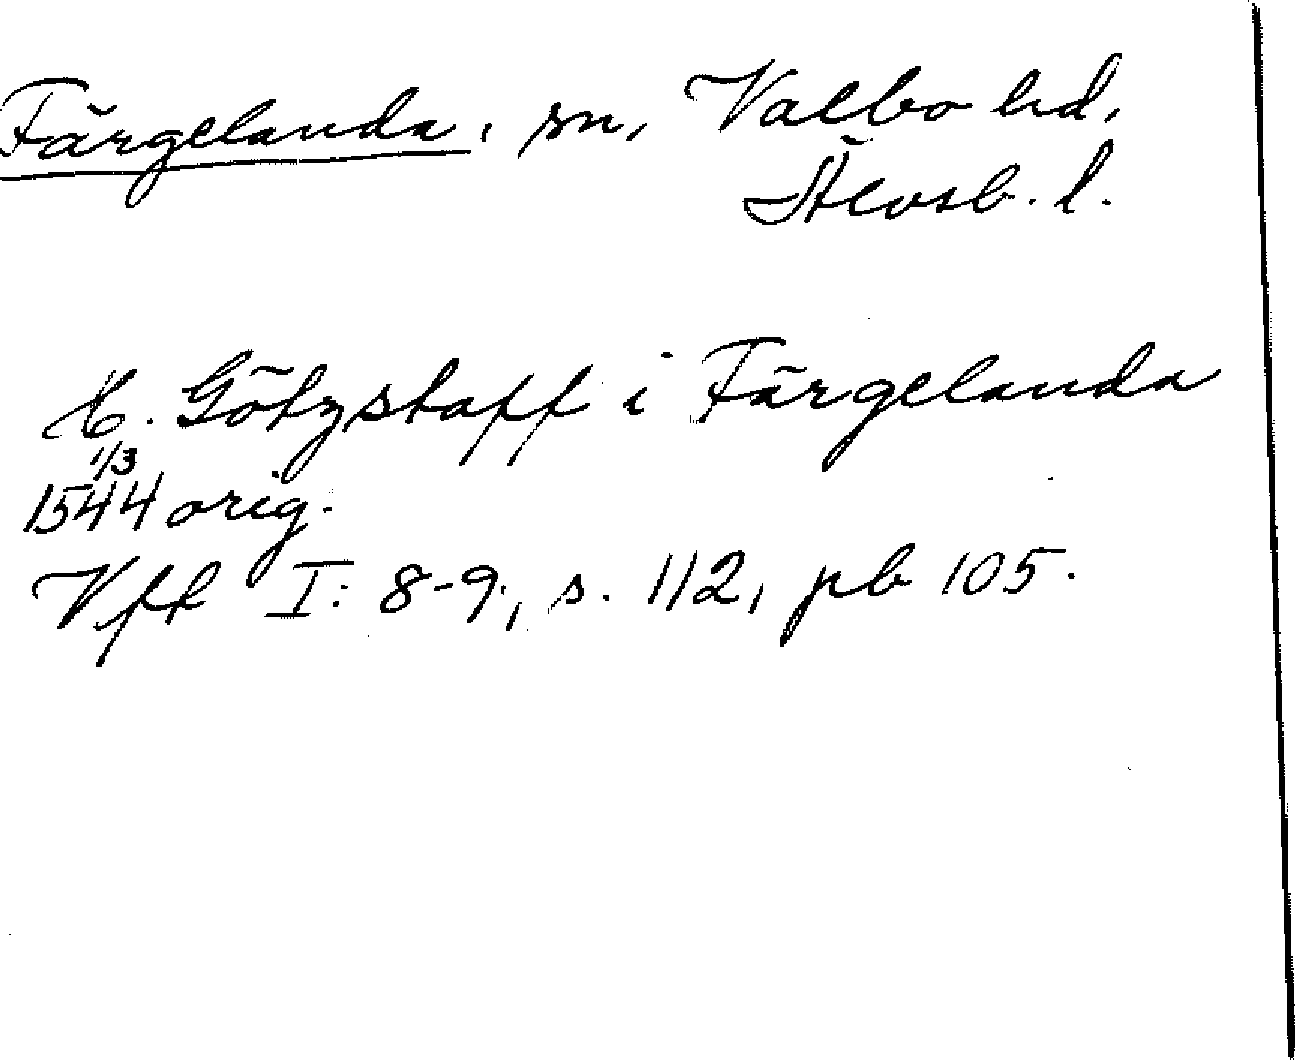 Färgelanda, sn, Valbo hd,
Älvsb. l.
H. Götzstaff i Färgelanda
1/3
1544 orig.
Vff I: 8-9, s. 112, pb 105.